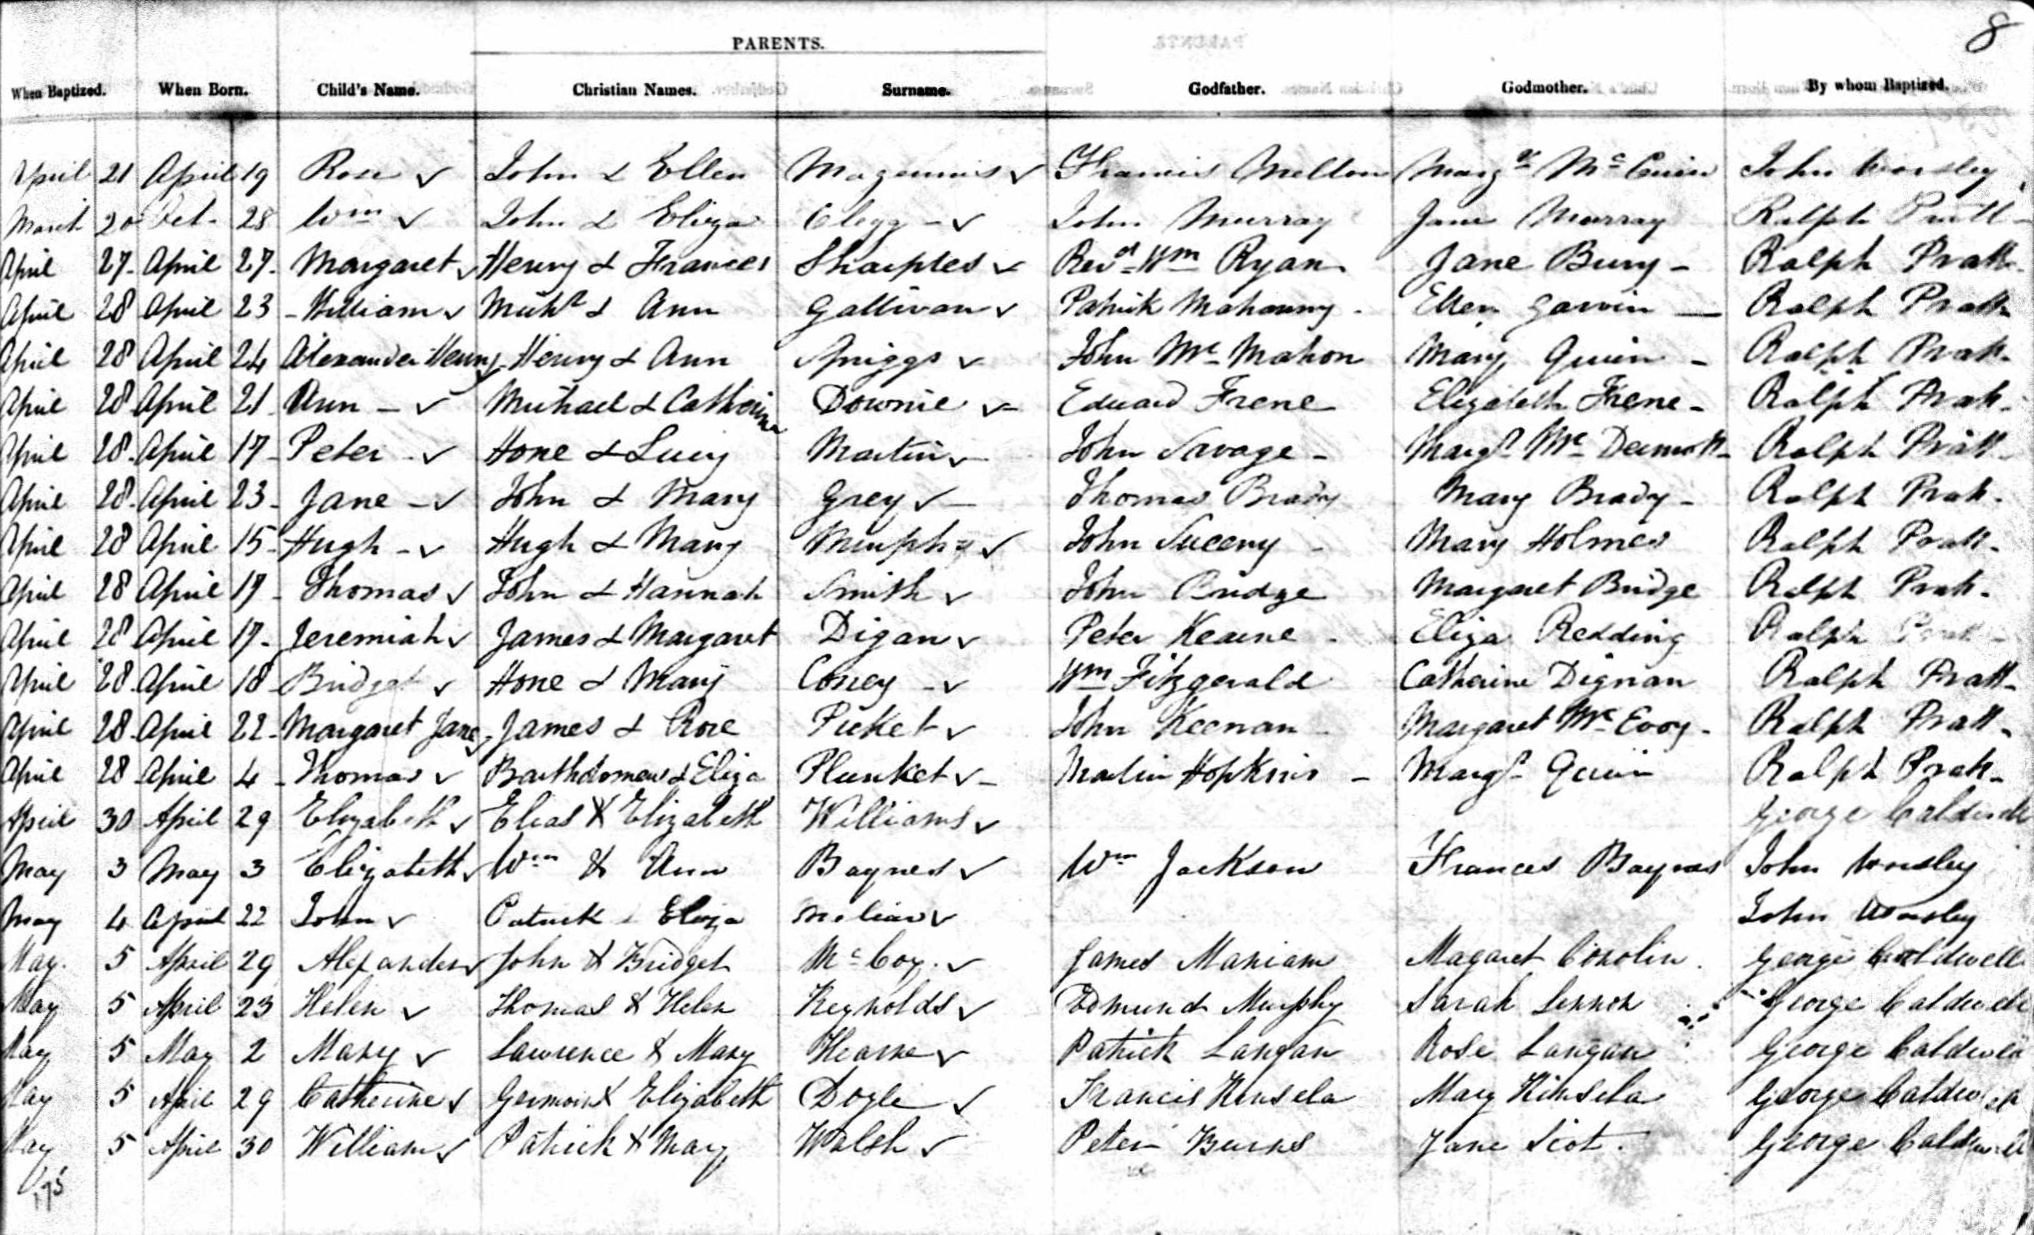 8
PARENTS.
When Baptized. When Born. Child's Name. Christian Names. Surname. Godfather. Godmother. By whom Baptized.
April 21 April 19 Rose John & Ellen Magennis Francis Mellon Margt McCuin John Worsley
March 20 Feb. 28 Wm John & Eliza Clegg John Murray Jane Murray Ralph Pratt
April 27 April 27 Margaret Henry & Frances Sharples Revd Wm Ryan Jane Bury Ralph Pratt
April 28 April 23 William Michl & Ann Gallivan Patrick Mahanny Ellen Garvin Ralph Pratt
April 28 April 24 Alexander Henry Henry & Ann Spriggs John McMahon Mary Quin Ralph Pratt
April 28 April 21 Ann Michael & Catherine Downie Edward Frene Elizabeth Frene Ralph Pratt
April 28 April 17 Peter Hone & Lucy Martin John Savage Margt McDermott Ralph Pratt
April 28 April 23 Jane John & Mary Grey Thomas Brady Mary Brady Ralph Pratt
April 28 April 15 Hugh Hugh & Mary Murphy John Mary Holmes Ralph Pratt
April 28 April 17 Thomas John & Hannah Smith John Bridge Margaret Bridge Ralph Pratt
April 28 April 17 Jeremiah James & Margaret Digan Peter Kearne Eliza Redding Ralph Pratt
April 28 April 18 Bridget Hone & Mary Coney Wm Fitzgerald Catherine Dignan Ralph Pratt
April 28 April 22 Margaret Jane James & Rose Picket John Keenan Margaret McEvoy Ralph Pratt
April 28 April 4 Thomas Bartholomew & Eliza Plunket Martin Hopkins Margt Quin Ralph Pratt
April 30 April 29 Elizabeth Elias & Elizabeth Williams George Caldwell
May 3 May 3 Elizabeth Wm & Ann Baynes Wm Jackson Frances Baynes John Worsley
May 4 April 22 John Patrick & Eliza John Worsley
May 5 April 29 Alexander John & Bridget McCoy James Maniam Magaret Conolin George Caldwell
May 5 April 23 Helen Thomas & Helen Reynolds Edmund Murphy Sarah Lennon George Caldwell
May 5 May 2 Mary Lawrence & Mary Hearne Patrick Langan Rose Langan George Caldwell
May 5 April 29 Catherine & Elizabeth Doyle Francis Kinsela Mary Kinsela George Caldwell
May 5 April 30 William Patrick & Mary Walsh Peter Burns Jane Scot George Caldwell
175